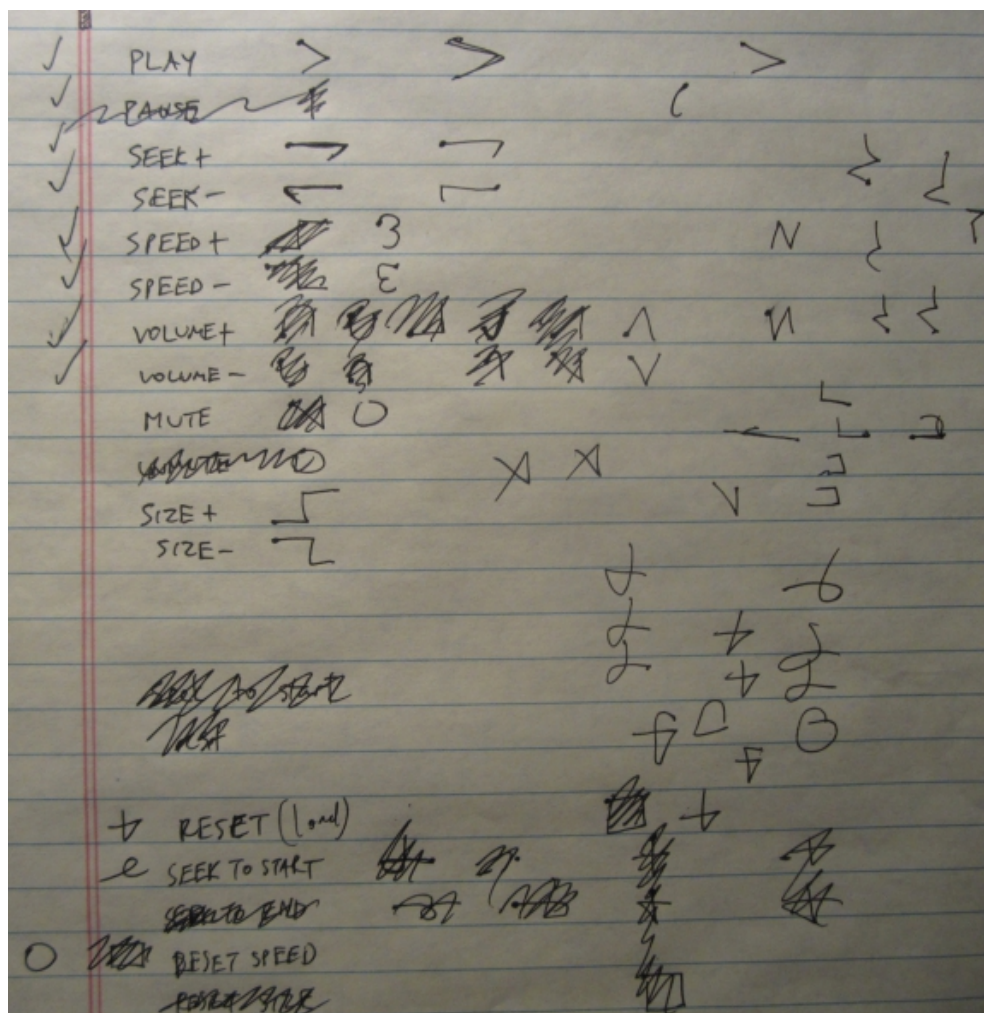 PLAY
PAUSE
SEEK+
SEEK-
SPEED+ 3 N
SPEED- ε
VOLUME+
VOLUME-
MUTE O
SIZE+
SIZE-
seek to start
RESET (load)
e SEEK TO START
SEEK TO END
O RESET SPEED